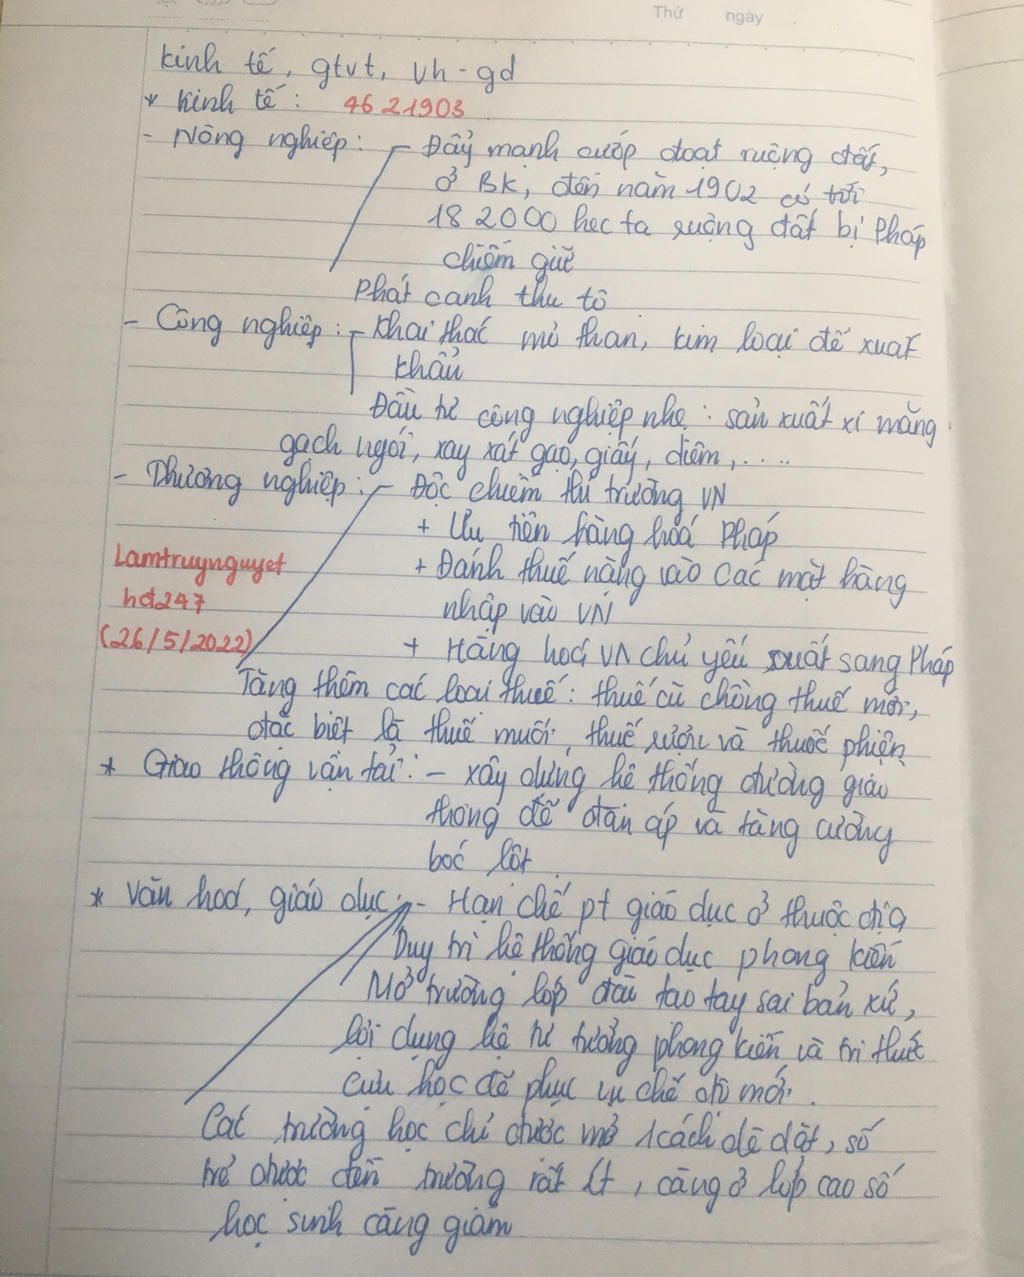 Thứ ngày
Kinh tế, gtvt, vh-gd
* Kinh tế: 46 21903
- Nông nghiệp: - Đẩy mạnh cướp đoạt ruộng đất,
ở BK, đến năm 1902 có tới
18 2000 hec ta ruộng đất bị Pháp
chiếm giữ
Phát canh thu tô
- Công nghiệp: - Khai thác mỏ than, kim loại để xuất
khẩu
Đầu tư công nghiệp nhẹ: sản xuất xi măng
gạch ngói, xay xát gạo, giấy, diêm, ....
- Thương nghiệp: - Độc chiếm thị trường VN
+ Ưu tiên hàng hoá Pháp
+ Đánh thuế nặng vào các mặt hàng
nhập vào VN
+ Hàng hoá VN chủ yếu xuất sang Pháp
Lamtruynguyet
hdt247
(26/5/2022)
Tăng thêm các loại thuế: thuế cũ chồng thuế mới,
đặc biệt là thuế muối, thuế rượu và thuốc phiện
* Giao thông vận tải: - xây dựng hệ thống đường giao
thông để đàn áp và tăng cường
bóc lột
* Văn hoá, giáo dục: - Hạn chế pt giáo dục ở thuộc địa
Duy trì hệ thống giáo dục phong kiến
Mở trường lớp đào tạo tay sai bản xứ,
lợi dụng hệ tư tưởng phong kiến và tri thức
cựu học để phục vụ chế độ mới.
Các trường học chỉ được mở 1 cách dè dặt, số
trẻ được đến trường rất ít, càng ở lớp cao số
học sinh càng giảm